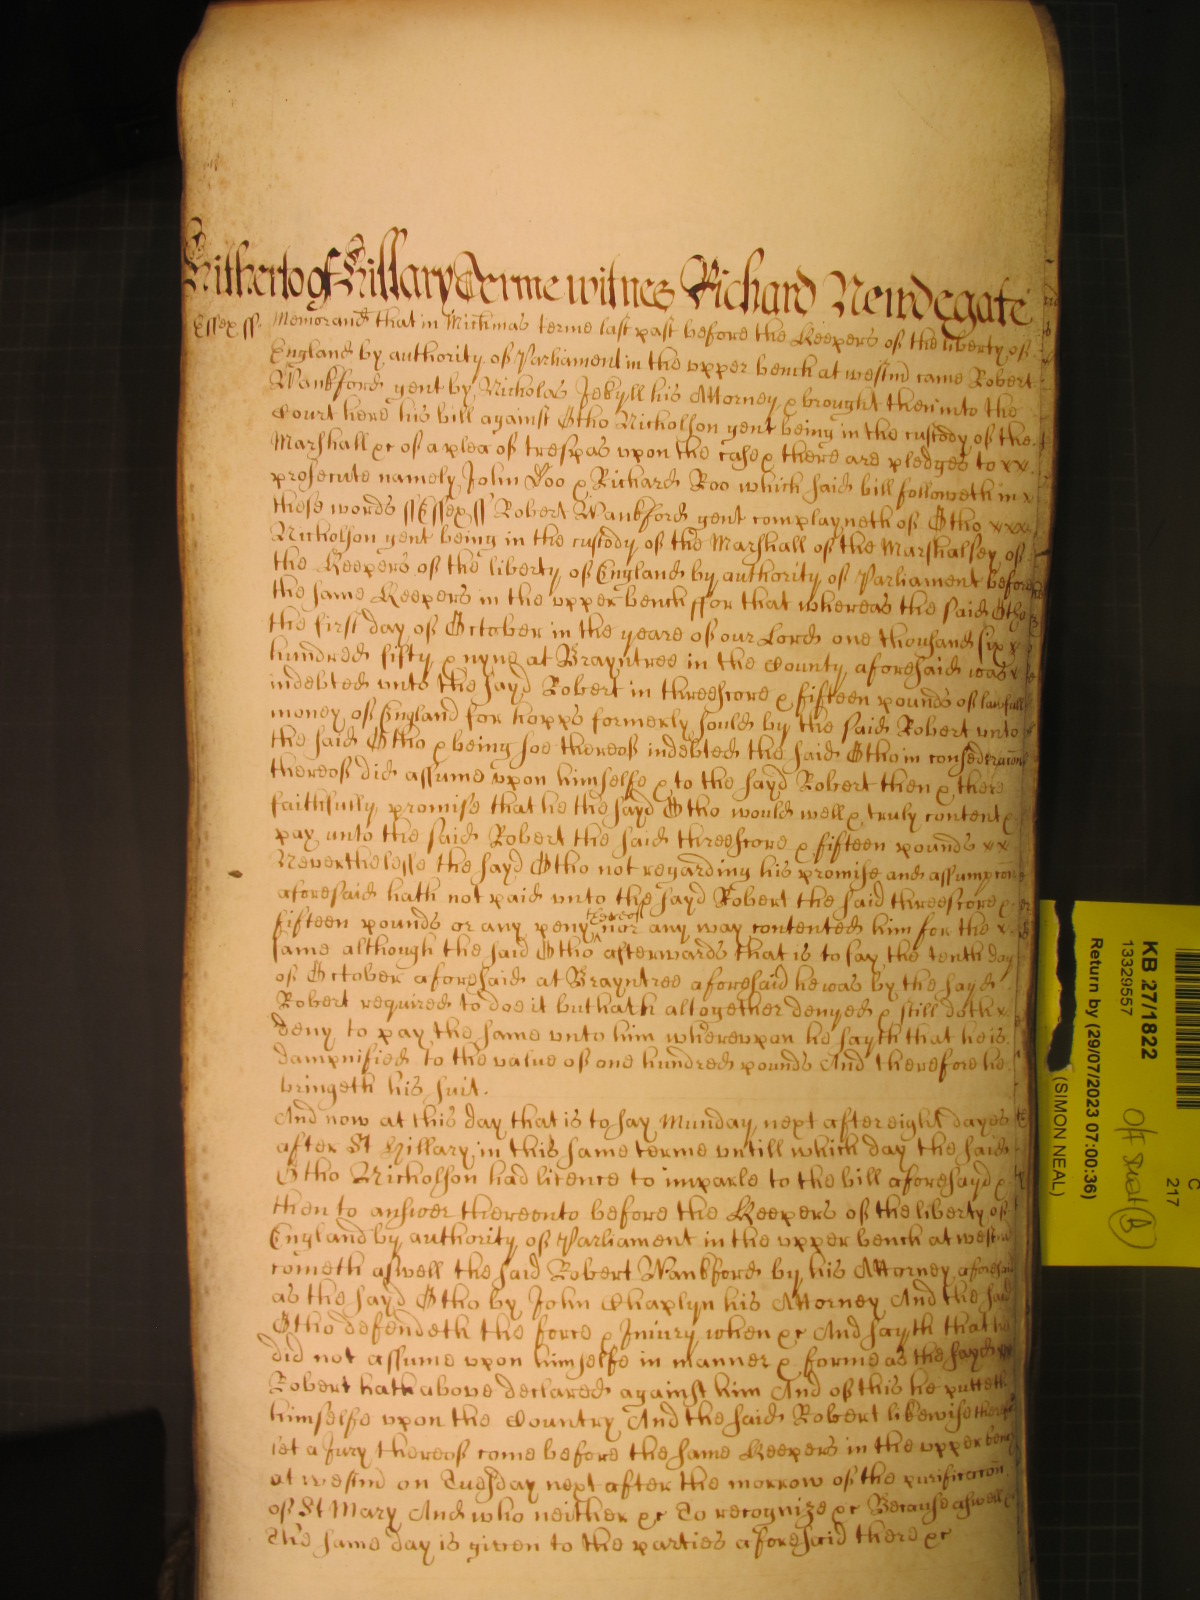 Hitherto of Hillary Terme witnes Richard Newdegate
Essex ss. Memorand that in Michmas terme last past before the Keepers of the liberty of
England by authority of Parliament in the upper bench at westm came Robert
Wankford gent by Nicholas Jekyll his Attorney & brought then into the
Court here his bill against Otho Nicholson gent being in the custody of the
Marshall &c of a plea of trespas upon the case & there are pledges to xx
prosecute namely John Doo & Richard Roo which said bill followeth in x
these words ss Essex ss Robert Wankford gent complayneth of Otho xxx
Nicholson gent being in the custody of the Marshall of the Marshalsey of
the Keepers of the liberty of England by authority of Parliament before
the same Keepers in the upper bench ffor that whereas the said Otho
the first day of October in the yeare of our Lord one thousand six x
hundred fifty & nyne at Brayntree in the County aforesaid was x
indebted unto the sayd Robert in threescore & fifteen pounds of lawfull
money of England for hopps formerly sould by the said Robert unto
the said Otho & being soe thereof indebted the said Otho in consideracon
thereof did assume upon himselfe & to the sayd Robert then & there
faithfully promise that he the sayd Otho would well & truly content &
pay unto the said Robert the said threescore & fifteen pounds xx
Neverthelesse the sayd Otho not regarding his promise and assumpcon
aforesaid hath not paid unto the sayd Robert the said threescore &
fifteen pounds or any peny thereof nor any way contented him for the x
same although the said Otho afterwards that is to say the tenth day
of October aforesaid at Brayntree aforesaid he was by the sayd
Robert required to doe it but hath altogether denyed & still doth x
deny to pay the same unto him whereupon he sayth that he is
dampnified to the value of one hundred pounds And therefore he
bringeth his suit.
And now at this day that is to say Munday next after eight dayes
after St Hillary in this same terme untill which day the said
Otho Nicholson had licence to imparle to the bill aforesayd &
then to answer thereunto before the Keepers of the liberty of
England by authority of Parliament in the upper bench at westm
cometh aswell the said Robert Wankford by his Attorney aforesaid
as the sayd Otho by John Chaplyn his Attorney And the said
Otho defendeth the force & Iniury when &c And sayth that he
did not assume upon himselfe in manner & forme as the sayd xx
Robert hath above declared against him And of this he putteth
himselfe upon the Country And the said Robert likewise therof
let a Jury thereof come before the same Keepers in the upper bench
at westm on Tuesday next after the morrow of the purificacon
of St Mary And who neither &c To recognize &c Because aswell &c
The same day is given to the parties aforesaid there &c
C
217
KB 27/1822
13329557
Return by (29/07/2023 07:00:36)
(SIMON NEAL)